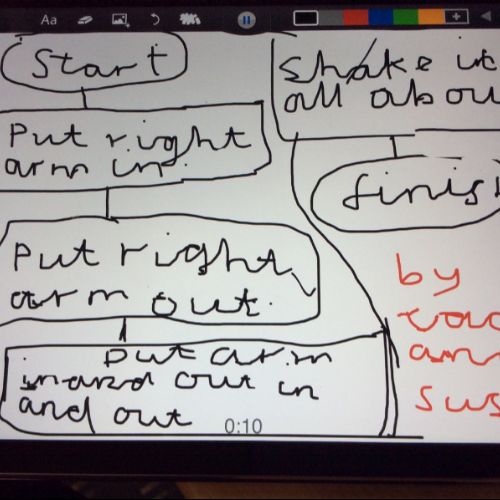 Aa
Start
Put right
arm in.
Put right
arm out.
put arm
in and out in
and out
0:10
Shake it
all abou
finis
by
an
sus